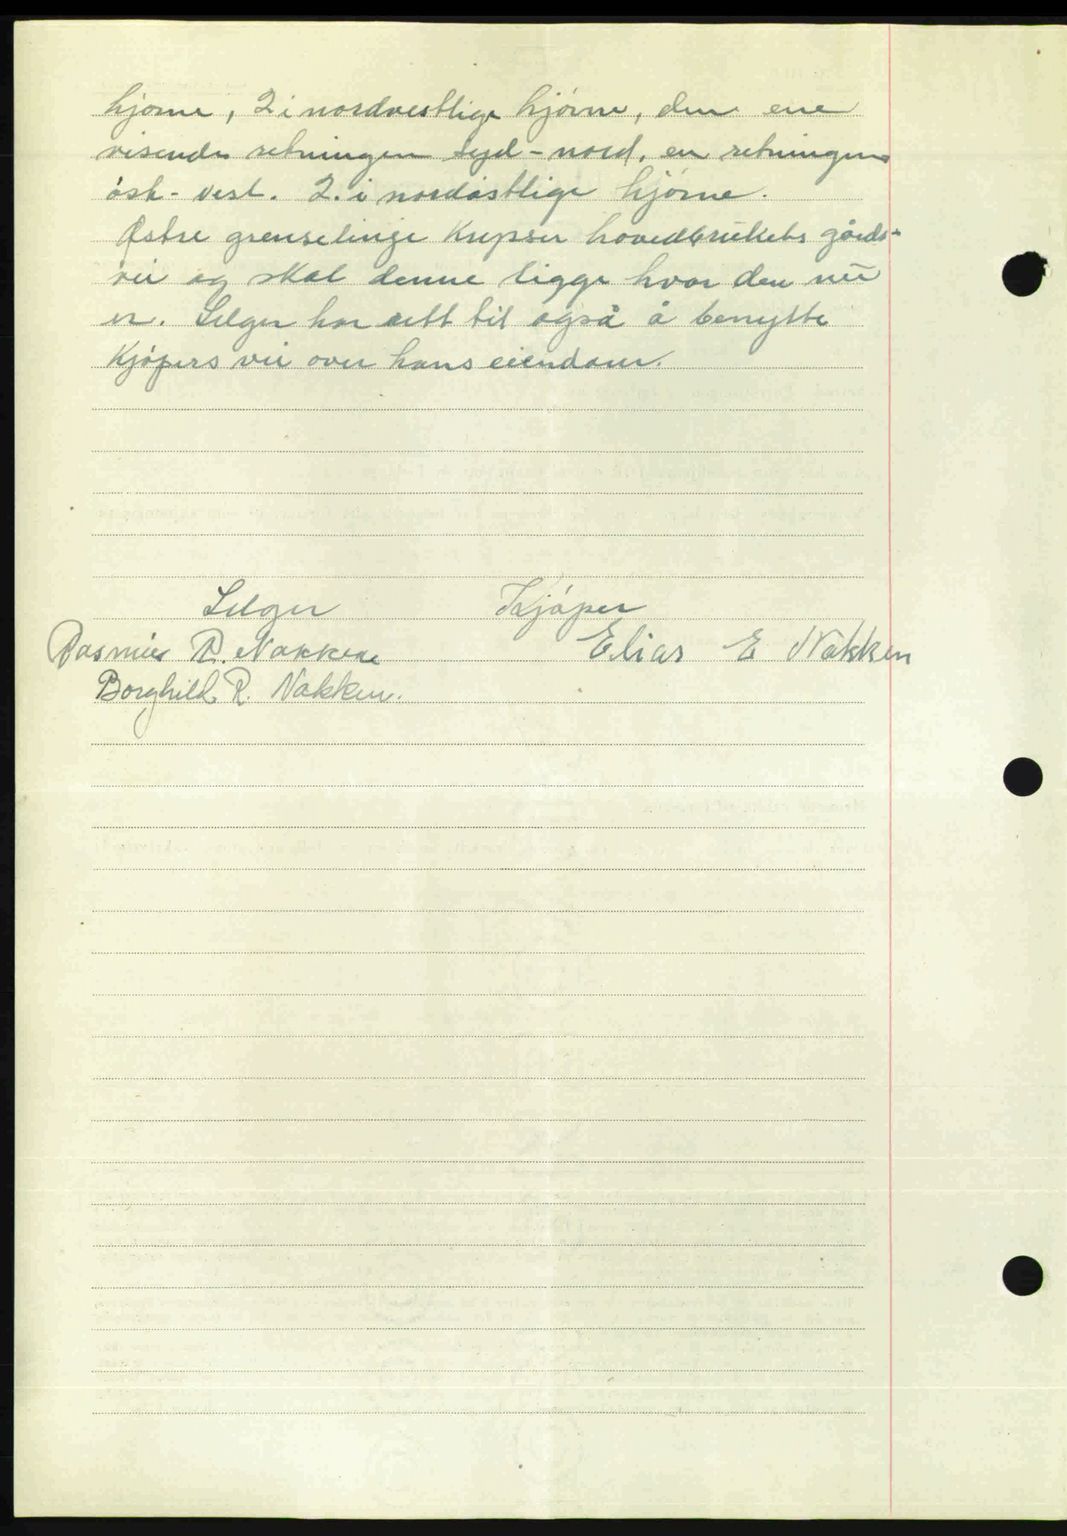 hjørne, 2 i nordvestlige hjørne, den ene
visende retningen syd - nord, en retningen
øst - vest. 2. i nordøstlige hjørne.
Østre grenselinje krysser hovedbrukets gårds-
vei og skal denne ligge hvor den nu
er. Selger har rett til også å benytte
Kjøpers vei over hans eiendom.
Selger Kjøper
Rasmus R. Nakken Elias E Nakken
Borghild R. Nakken.